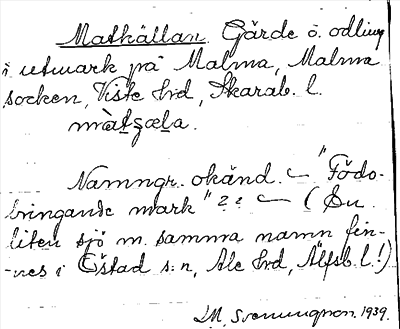 Matkällan. Gärde o. odling
i utmark på Malma, Malma
socken, Viste hrd, Skarab. l.
màtʂæla.
Namngr. okänd. — "Födo-
bringande mark"?? — (En
liten sjö m. samma namn fin-
-nes i Östad s:n, Ale hrd, Älfsb. l.!)
M. Svenungson. 1939.